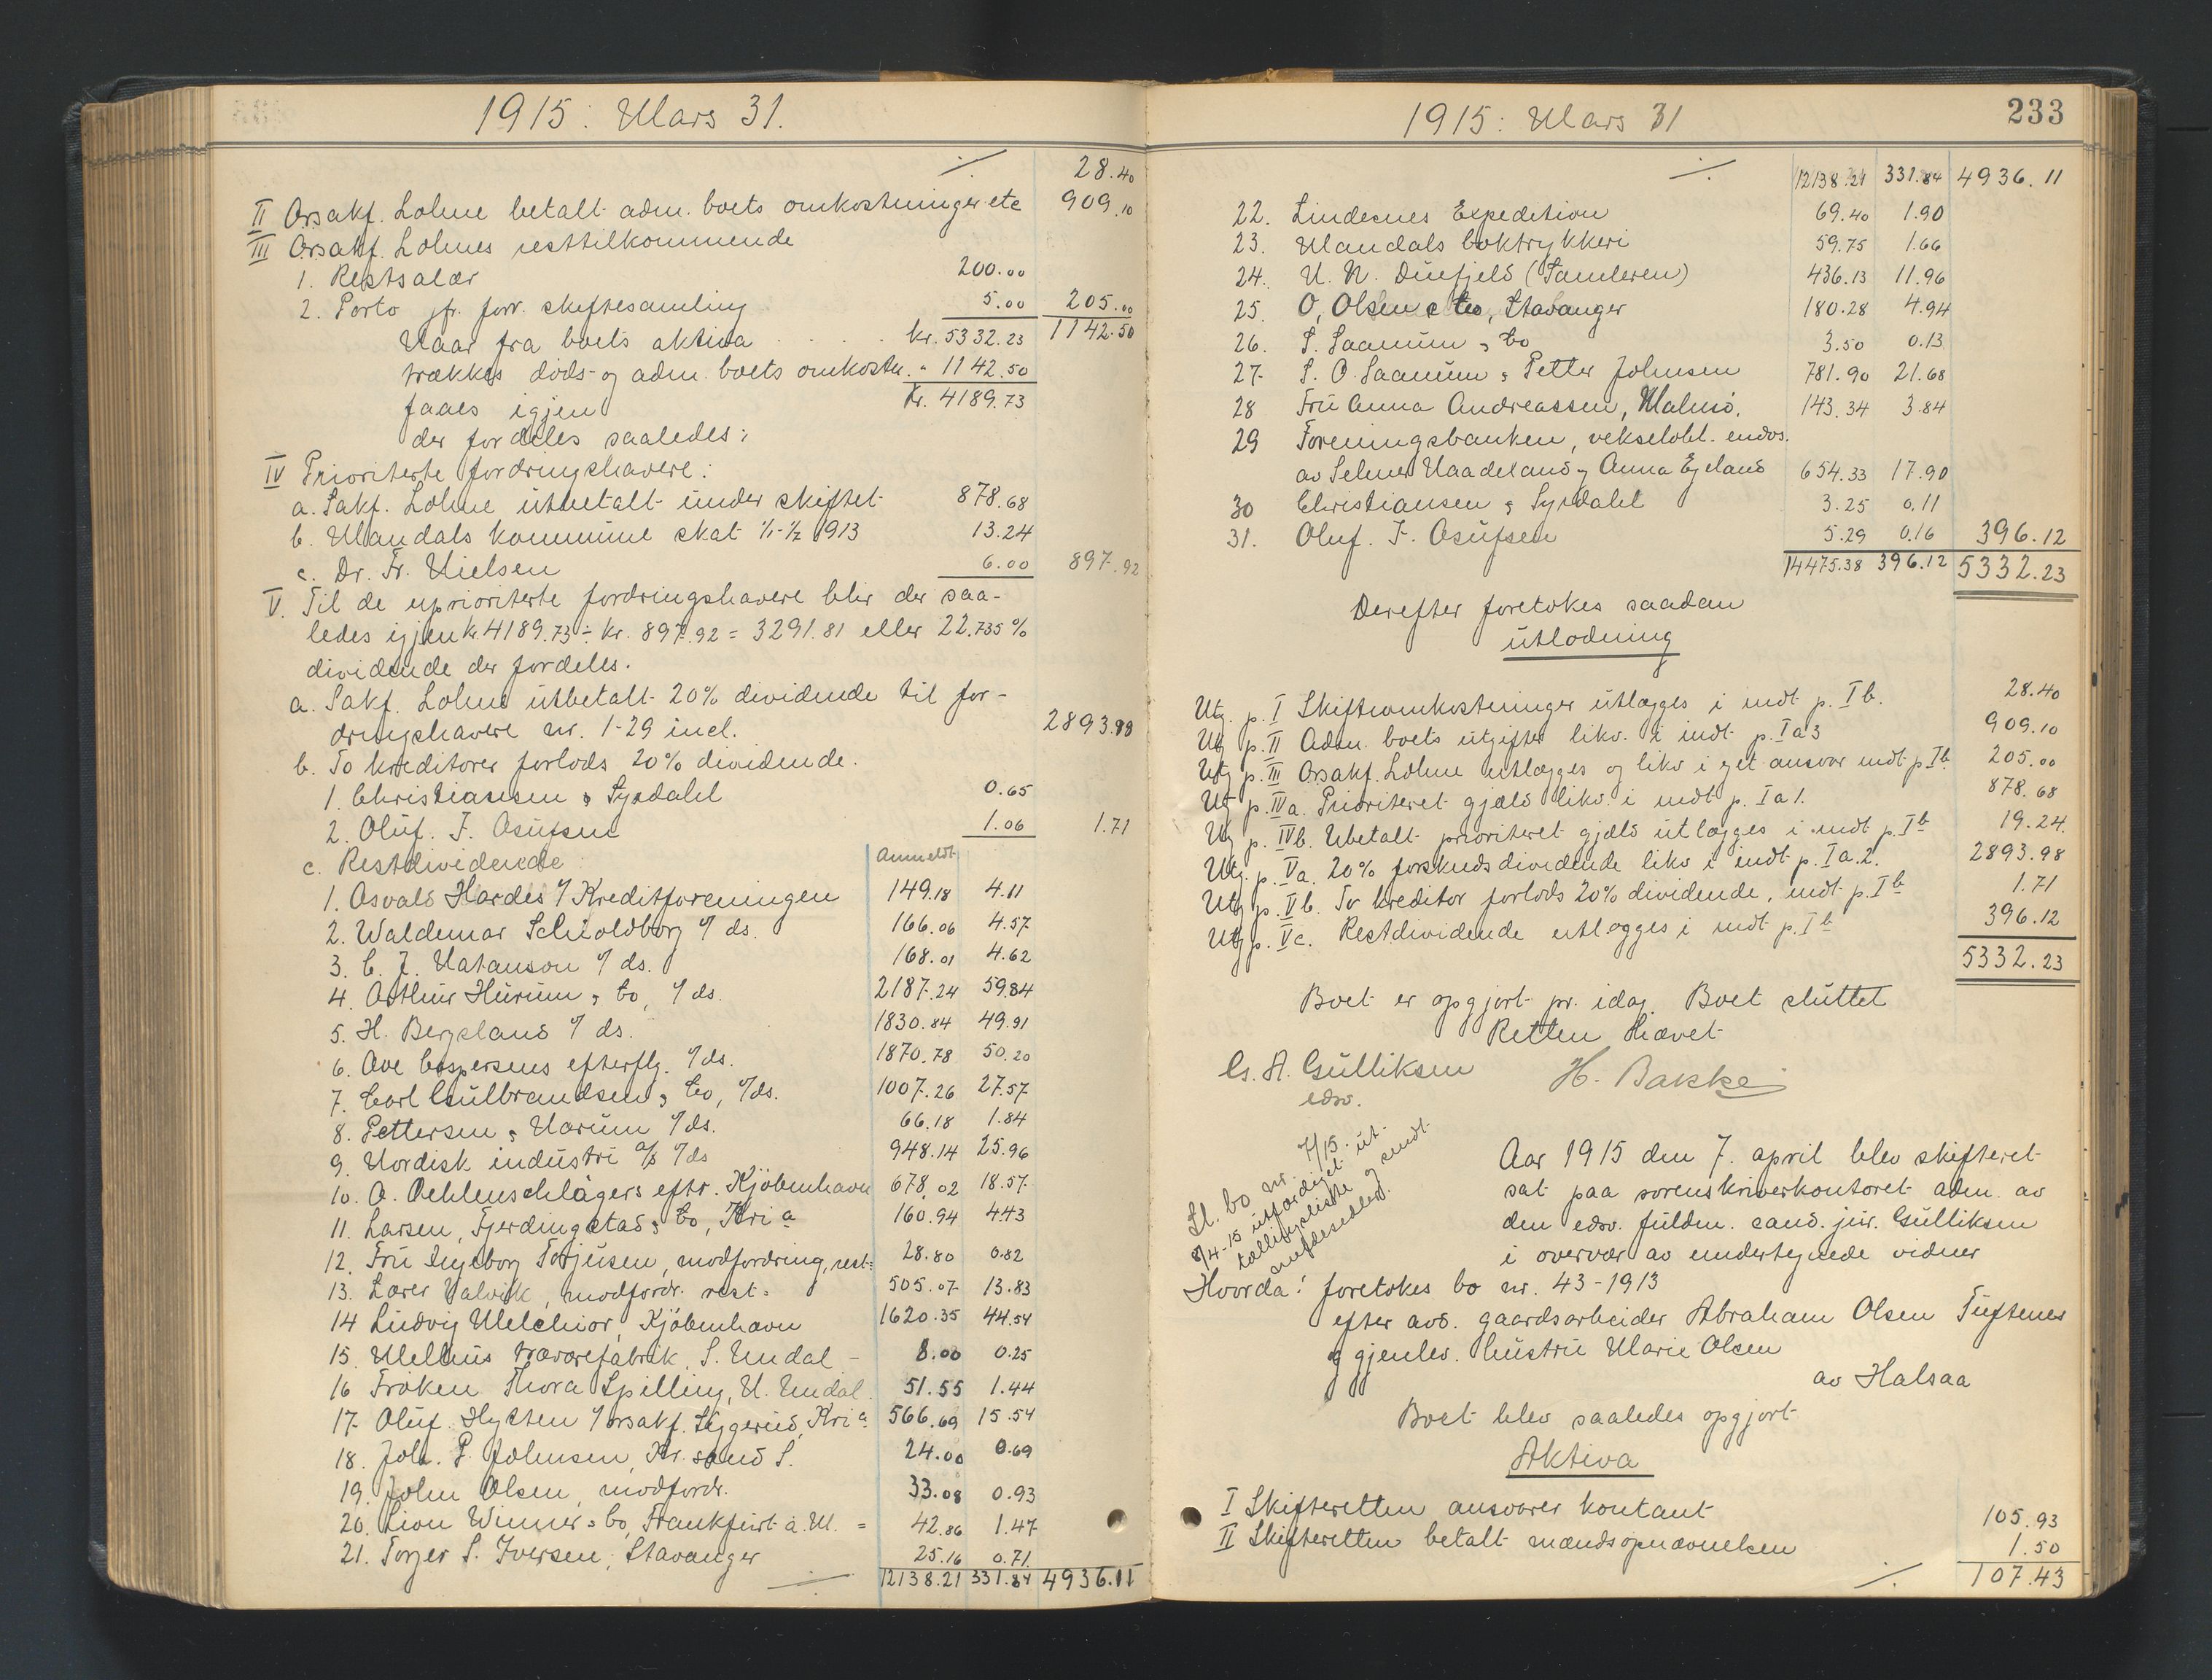 1915: Mars 31.
./. 28.40
II Orsakf. Lohne betalt adm. boets omkostninger etc 909.10
III Orsakf. Lohnes resttilkommende
1. Restsalær 200.00
2. Porto jfr. forr. skiftesamling 5.00 205.00
Naar fra boets aktiva . . . . kr. 5332.23 1142.50
trækkes döds- og adm. boets omkostn. " 1142.50
faaes igjen kr. 4189.73
der fordeles saaledes:
IV Prioriterte fordringshavere:
a. Sakf. Lohne utbetalt under skiftet 878.68
b. Mandals kommune skat 1/1-1/2 1913 13.24
c. Dr. Fr. Nielsen 6.00 897.92
V. Til de uprioriterte fordringshavere blir der saa-
ledes igjen kr. 4189.73 ÷ kr. 897.92 = 3291.81 eller 22.735 %
dividende der fordeles.
a. Sakf. Lohne utbetalt 20% dividende til for-
dringshavere nr. 1-29 incl. 2893.98
b. To kreditorer forlods 20% dividende.
1. Christiansen & Syrdahl 0.65
2. Oluf. F. Asufsen 1.06 1.71
c. Restdividende: Anmeldt
1. Osvald Hardes v/ Kreditforeningen 149.18 4.11
2. Waldemar Schioldborg v/ ds. 166.06 4.57
3. C. J. Natanson v/ ds. 168.01 4.62
4. Arthur Hurum & Co, v/ ds. 2187.24 59.84
5. H. Bergsland v/ ds. 1830.84 49.91
6. Ove Caspersens efterflg. v/ds. 1870.78 50.20
7. Carl Gulbrandsen & Co, v/ds. 1007.26 27.57
8. Pettersen & Narum v/ds. 66.18 1.84
9. Nordisk industri a/s v/ds 948.14 25.96
10. A. Oehlenschlägers eftr. Kjöbenhavn 678.02 18.57
11. Larsen, Fjerdingstad & Co, Kri a 160.94 4.43
12. Fru Ingeborg Torjusen, modfordring, rest= 28.80 0.82
13. Lærer Valvik, modfordr. rest= 505.07 13.83
14 Ludvig Melchior, Kjöbenhavn 1620.35 44.54
15. Melhus trævarefabrik, S. Undal - 8.00 0.25
16 Fröken Thora Spilling, N. Undal. 51.55 1.44
17. Oluf. Hytten v/ orsakf. Seggerud, Kri a 566.69 15.54
18. Joh. P. Johnsen, Kr.sand S. 24.00 0.69
19. John Olsen, modfordr. 33.08 0.93
20. Lion Winner & Co, Frankfurt a. M. = 42.86 1.47
21. Torjer S. Iversen, Stavanger 25.16 0.71
./. 12138.21 331.84 4936.11
1915: Mars 31
233
./. 12138.21 331.84 4936.11
22. Lindesnes Expedition 69.40 1.90
23. Mandals boktrykkeri 59.75 1.66
24. N. N. Duefjeld (Samleren) 436.13 11.96
25. O. Olsen & Co, Stavanger 180.28 4.94
26. S. Saanum & Co 3.50 0.13
27. S. O. Saanum & Petter Johnsen 781.90 21.68
28 Fru Anna Andreassen, Malmö. 143.34 3.84
29 Foreningsbanken, vekselobl. endos.
av Selmer Naadeland og Anna Egeland 654.33 17.90
30 Christiansen & Syrdahl 3.25 0.11
31. Oluf. F. Asufsen 5.29 0.16 396.12
14475.38 396.12 5332.23
Derefter foretokes saadan
utlodning
Utg. p. I Skifteomkostninger utlægges i indt p. Ib. 28.40
Utg p. II Adm. boets utgifter likv. i indt. p. Ia3 909.10
Utg p. III Orsakf. Lohne utlægges og likv i eget ansvar indt p Ib 205.00
Utg p. IVa. Prioritert gjæld likv. i indt p. Ia1. 878.68
Utg p. IVb. Ubetalt prioritert gjæld utlægges i indt p. Ib 19.24
Utg. p. Va. 20% forskudsdividende likv i indt p. Ia.2. 2893.98
Utg p. Vb. To kreditor forlods 20% dividende, indt p. Ib 1.71
Utg p. Vc. Restdividende utlægges i indt p. Ib 396.12
5332.23
Boet er opgjort pr. idag. Boet sluttet
Retten hævet
Cs. A. Gulliksen H. Bakke
edsv.
Sl. bo nr. 7/15.
8/4-15 utfærdiget ut-
tallingsliste og sendt
anfdesedler.
Aar 1915 den 7. april blev skifteret
sat paa sorenskriverkontoret adm. av
den edsv. fuldm. cand. jur. Gulliksen
i overvær av undertegnede vidner
Hvorda: foretokes bo nr. 43-1913
efter avd. gaardsarbeider Abraham Olsen Tuftenes
og gjenlev. hustru Marie Olsen
av Halsaa
Boet blev saaledes opgjort
Aktiva
I Skifteretten ansvarer kontant 105.93
II Skifteretten betalt mændsopnævnelsen 1.50
./. 107.43